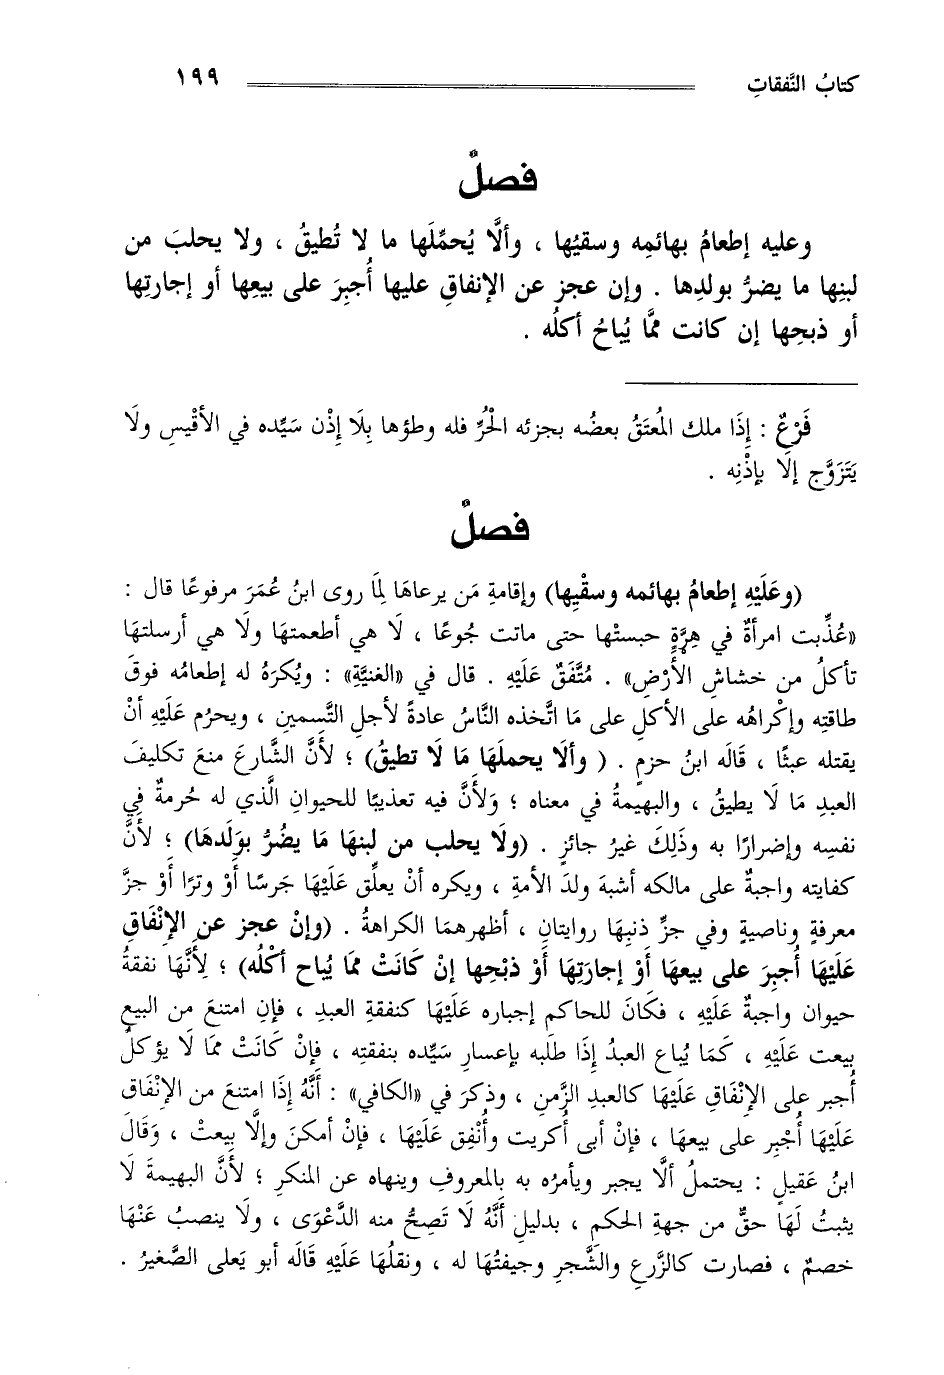 كتابُ النَّفقاتِ ١٩٩
فصلٌ
وعليه إطعامُ بهائمِه وسقيُها ، وألَّا يُحمِّلَها ما لا تُطيقُ ، ولا يحلبَ من
لبنِها ما يضرُّ بولدِها . وإن عجز عن الإنفاقِ عليها أُجبِرَ على بيعِها أو إجارتِها
أو ذبحِها إن كانت ممَّا يُباحُ أكلُه .
فَرْعٌ : إذَا ملك المُعتَقُ بعضُه بجزئه الحُرِّ فله وطؤها بِلَا إذْن سَيِّده في الأقْيسِ ولَا
يَتَزَوَّج إلَّا بإذْنِه .
فصلٌ
(وعَلَيْهِ إطعامُ بهائمه وسقْيِها) وإقامةِ مَن يرعاهَا لِمَا روى ابنُ عُمَرَ مرفوعًا قال :
«عُذِّبت امرأةٌ في هِرَّةٍ حبستْها حتى ماتت جُوعًا ، لَا هي أطعمتهَا ولَا هي أرسلتهَا
تأكلُ من خشاشِ الأَرْضِ» . مُتَّفَقٌ عَلَيْهِ . قال في «الغنيَّةِ» : ويُكرَهُ له إطعامُه فوقَ
طاقتِه وإكْراهُه على الأكلِ على مَا اتَّخذه النَّاسُ عادةً لأجلِ التَّسمينِ ، ويحرُم عَلَيْهِ أنْ
يقتله عبثًا ، قَالَه ابنُ حزمٍ . ( وألَا يحملَهَا مَا لَا تطيقُ) ؛ لأنَّ الشَّارعَ منعَ تكليفَ
العبدِ مَا لَا يطيقُ ، والبهيمةُ في معناه ؛ وَلأنَّ فيه تعذيبًا للحيوانِ الَّذي له حُرمةٌ في
نفسِه وإضرارًا به وذَلِكَ غيرُ جائزٍ . (ولَا يحلب من لبنهَا مَا يضُرُّ بوَلَدهَا) ؛ لأنَّ
كفايته واجبةٌ على مالكه أشبهَ ولدَ الأمةِ ، ويكره أنْ يعلِّق عَلَيْهَا جَرسًا أوْ وترًا أوْ جزَّ
معرفةٍ وناصيةٍ وفي جزِّ ذنبِهَا روايتانِ ، أظهرهمَا الكراهةُ . (وإنْ عجز عن الإنْفَاقِ
عَلَيْهَا أُجبِرَ على بيعهَا أوْ إجارَتِهَا أوْ ذبْحِها إنْ كَانَتْ ممَا يُباح أكْلُه) ؛ لِأنَّهَا نفقةُ
حيوان واجبةٌ عَلَيْهِ ، فكَانَ للحاكم إجباره عَلَيْهَا كنفقةِ العبدِ ، فإنِ امتنعَ من البيعِ
بيعت عَلَيْهِ ، كَمَا يُباع العبدُ إذَا طلَبه بإعسارِ سَيِّده بنفقتِه ، فإنْ كَانَتْ ممَا لَا يؤكلُ
أُجبر على الإنْفَاقِ عَلَيْهَا كالعبدِ الزَّمنِ ، وذكرَ في «الكافي» : أنَّهُ إذَا امتنعَ من الإنْفَاق
عَلَيْهَا أُجْبِر على بيعهَا ، فإنْ أبى أُكريت وأُنْفِق عَلَيْهَا ، فإنْ أمكنَ وإلَّا بيعتْ ، وَقَالَ
ابنُ عَقيلٍ : يحتملُ ألَّا يجبر ويأمرُه به بالمعروفِ وينهاه عن المنكرِ ؛ لأنَّ البهيمةَ لَا
يثبتُ لَهَا حقٌّ من جهةِ الحكمِ ، بدليلِ أنَّهُ لَا تَصِحُّ منه الدَّعْوَى ، ولَا ينصبُ عَنْهَا
خصمٌ ، فصارت كالزَّرعِ والشَّجرِ وجيفتُهَا له ، ونقلُهَا عَلَيْهِ قَالَه أبو يَعلى الصَّغيرُ .